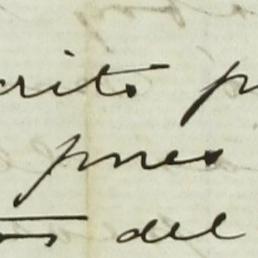 crito p
pues
os del